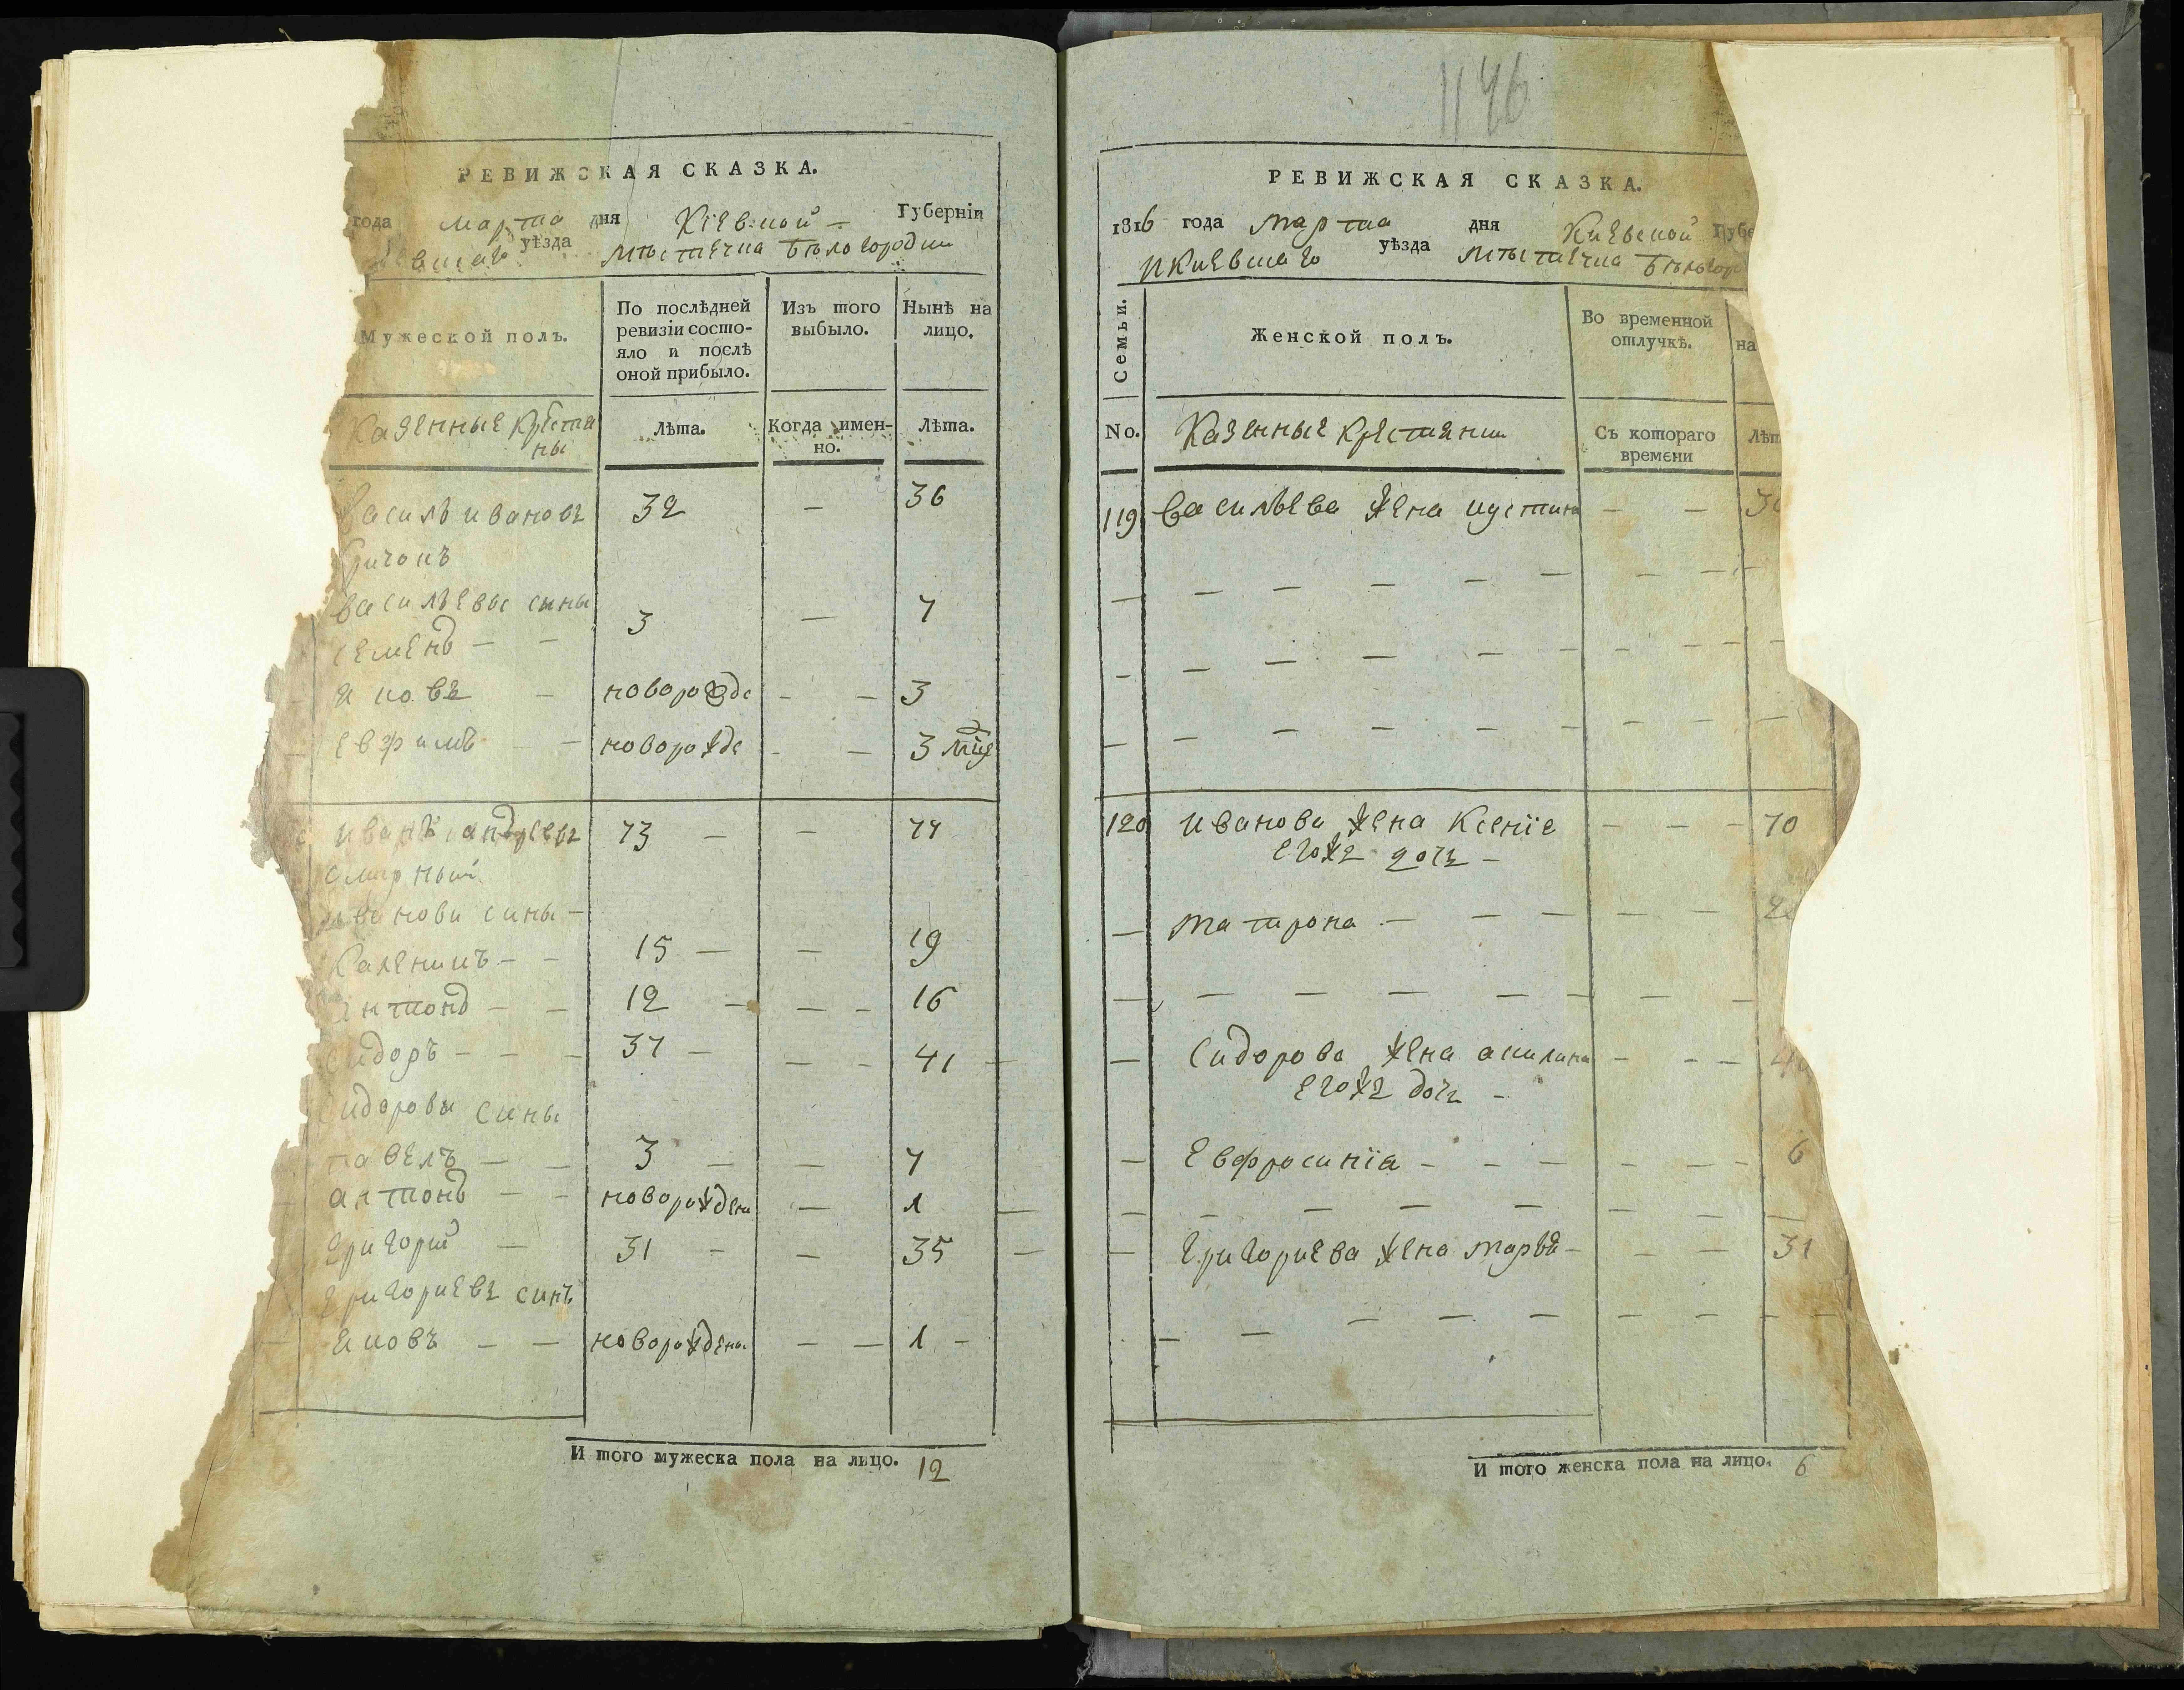 РЕВИЖСКАЯ СКАЗКА.
года марта дня Кіевской Губерніи
уѣзда мѣстечка Бѣлогородки
Мужеской полъ.
По послѣдней ревизіи состо-
яло и послѣ
оной прибыло.
Изъ того
выбыло.
Нынѣ на
лицо.
Казенные крестя
ны
Лѣта.
Когда имен-
но.
Лѣта.
Василь ивановъ 32 — 36
васильевы сыны
семенъ — — 3 — 7
яковъ — новорожде — — 3
евфимъ — — новорожде — — 3 мце
иванъ андреевъ 73 — — 77
Смирный
ивановы сины —
Каленикъ — — 15 — — 19
антонъ — — 12 — — — 16
Сидоръ — — — 37 — — — 41
Сидоровы сины
павелъ — — 3 — — 7
антонъ — — новорожден — 1
григорий — 31 — — 35
григориевъ синъ
яковъ — — новорожденъ — — 1 —
И того мужеска пола на лицо. 12
1146
РЕВИЖСКАЯ СКАЗКА.
1816 года марта дня Киевской Губе
Киевскаго уѣзда мѣстечка Бѣлогоро
Семьи.
Женской полъ.
Во временной
отлучкѣ.
на
No.
Казенные крестянки
Съ котораго
времени
Лѣт
119 васильева жена иустина — —
120 Иванова жена Ксенія — — — 70
егожъ дочъ —
матрона — — — — —
Сидорова жена акилина — — —
егожъ дочъ —
Евфросинія — — — — — — 6
григориева жена марѳа — — — 31
И того женска пола на лицо. 6